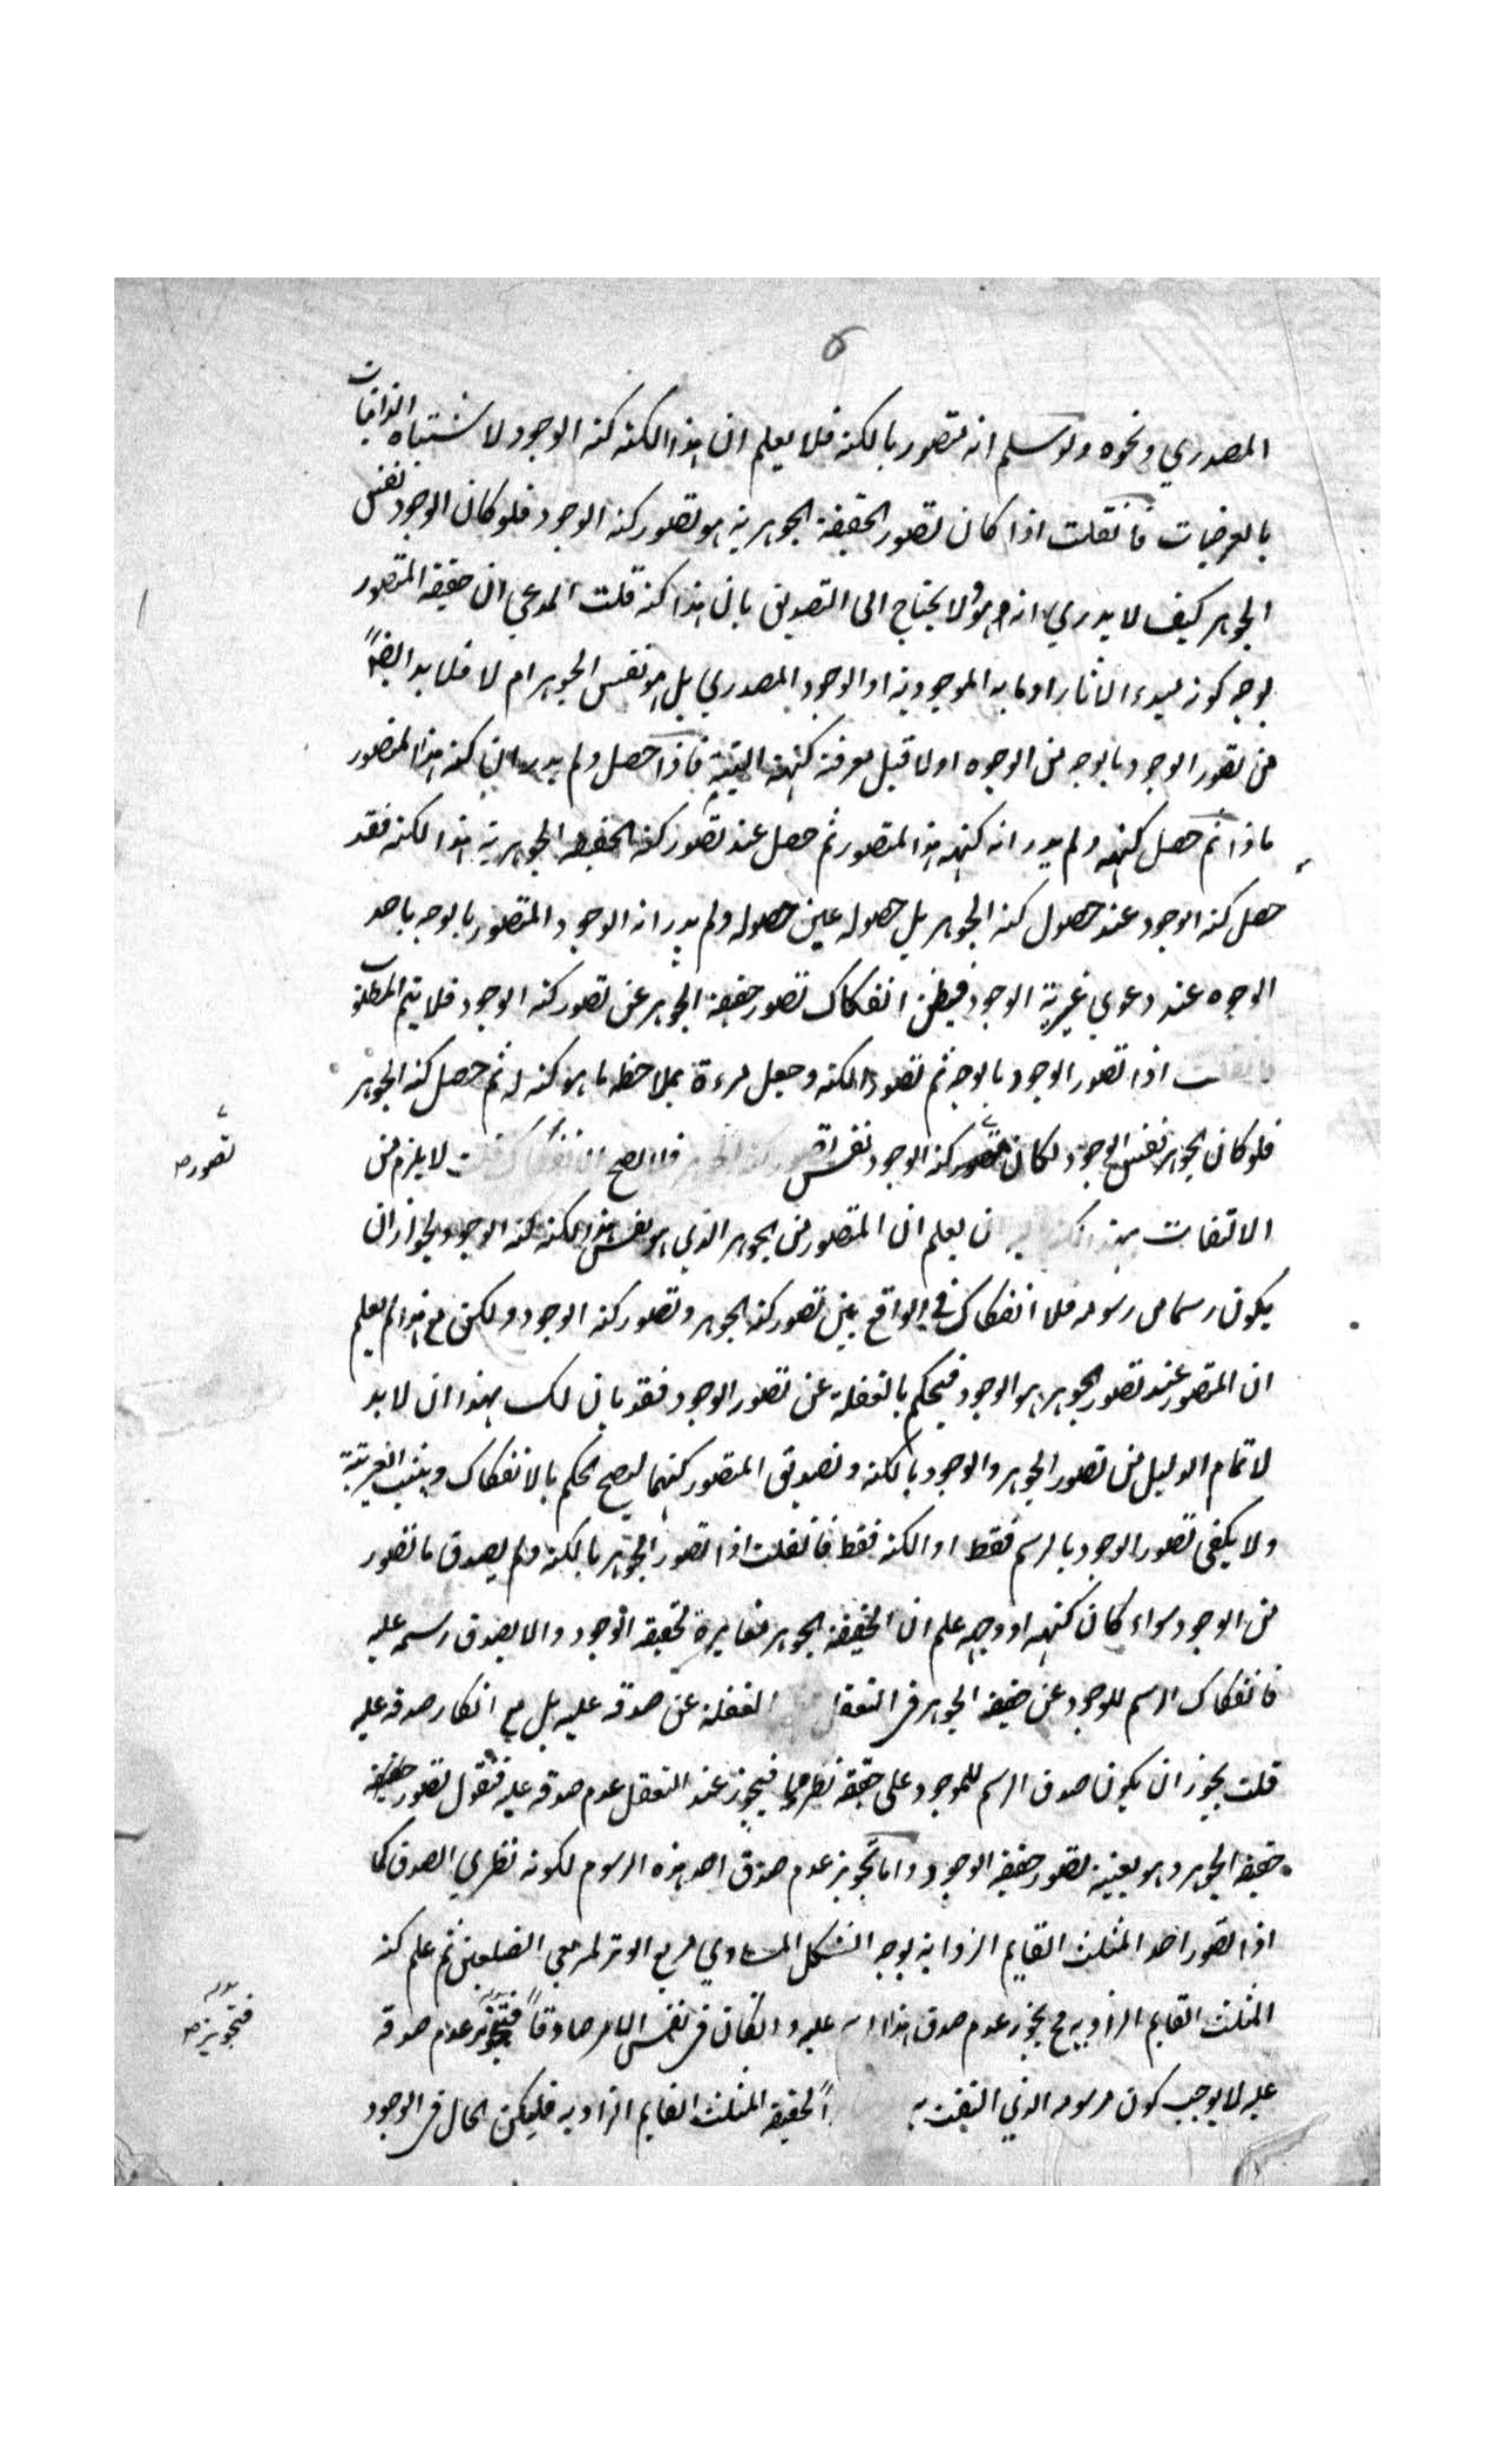 ٥
المصدري ونحوه ولو سلم انه متصور بالكنه فلا يعلم ان هذا الكنه كنه الوجود لاشتباه الذاتيات
بالعرضيات فانقلت اذا كان تصور الحقيقة الجوهرية هو تصور كنه الوجود فلو كان الوجود نفس
الجوهر كيف لا يدري انه هو ولا يحتاج الى التصديق بان هذا كنه قلت المدعي ان حقيقة المتصور
بوجه كونه مبدء الاثار او ما به الموجودية او الوجود المصدري بل هو نفس الجوهر ام لا فلا بد ايضاً
من تصور الوجود بالوجه من الوجوه اولا قبل معرفة كنهه فاذا حصل ولم يدر ان كنه هذا المتصور
ماذا ثم حصل كنهه ولم يدر انه كنه هذا المتصور ثم حصل عند تصور كنه الحقيقة الجوهرية هذا الكنه فقد
حصل كنه الوجود عند حصول كنه الجوهر بل حصوله عين حصوله ولم يدر انه الوجود المتصور بالوجه باحد
الوجوه عند دعوي غيرية الوجود فيظن انفكاك تصور حقيقة الجوهر عن تصور كنه الوجود فلا يتم المطلوب
فانقلت اذا تصور الوجود بالوجه ثم تصور الكنه وجعل مرءة بملاحظة ما هو كنه له ثم حصل كنه الجوهر
فلو كان الجوهر نفس الوجود لكان تصور كنه الوجود نفس تصور كنه الجوهر فلا يصح الانفكاك قلت لا يلزم من
تصور صح
الالتفات ان يعلم ان المتصور من الجوهر الذي هو نفس هذا الكنه كنه الوجود لجواز ان
يكون رسما من رسومه فلا انفكاك في الواقع بين تصور كنه الجوهر وتصور كنه الوجود ولكن مع هذا لم يعلم
ان المتصور عند تصور الجوهر هو الوجود فيحكم بالغفلة عن تصور الوجود فقد بان لك بهذا ان لا بد
لاتمام الدليل من تصور الجوهر والوجود بالكنه وتصديق المتصور كنههما ليصح الحكم بالانفكاك ويثبت الغيرية
ولا يكفي تصور الوجود بالرسم فقط او الكنه فقط فانقلت اذا تصور الجوهر بالكنه ولم يصدق ما تصور
من الوجود سواء كان كنهه او وجهه علم ان الحقيقة الجوهر مغايرة لحقيقة الوجود والا يصدق رسمه عليه
فانفكاك الرسم للوجود عن حقيقة الجوهر في التعقل الغفلة عن صدقه عليه بل مع انكار صدقه عليه
قلت يجوز ان يكون صدق الرسم للموجود على حقيقة نظريا فيجوز عند التعقل عدم صدقه عليه فنقول تصور حقيقة
حقيقة الجوهر وهو بعينه تصور حقيقة الوجود واما تجويز عدم صدق احد هذه الرسوم لكونه نظري الصدق كما
اذا تصور احد المثلث القايم الزواية بوجه الشكل المساوي مربع الوتر لمربعي الضلعين ثم علم كنه
المثلث القايم الزاويه مع يجوز عدم صدق هذا عليه وانكان في نفس الامر صادقاً فتجويز عدم صدقه
فتجويز صح
عليه لا يوجب كون مرسومه الذي التفت به لحقيقة المثلث القايم الزاويه فليكن الحال في الوجود